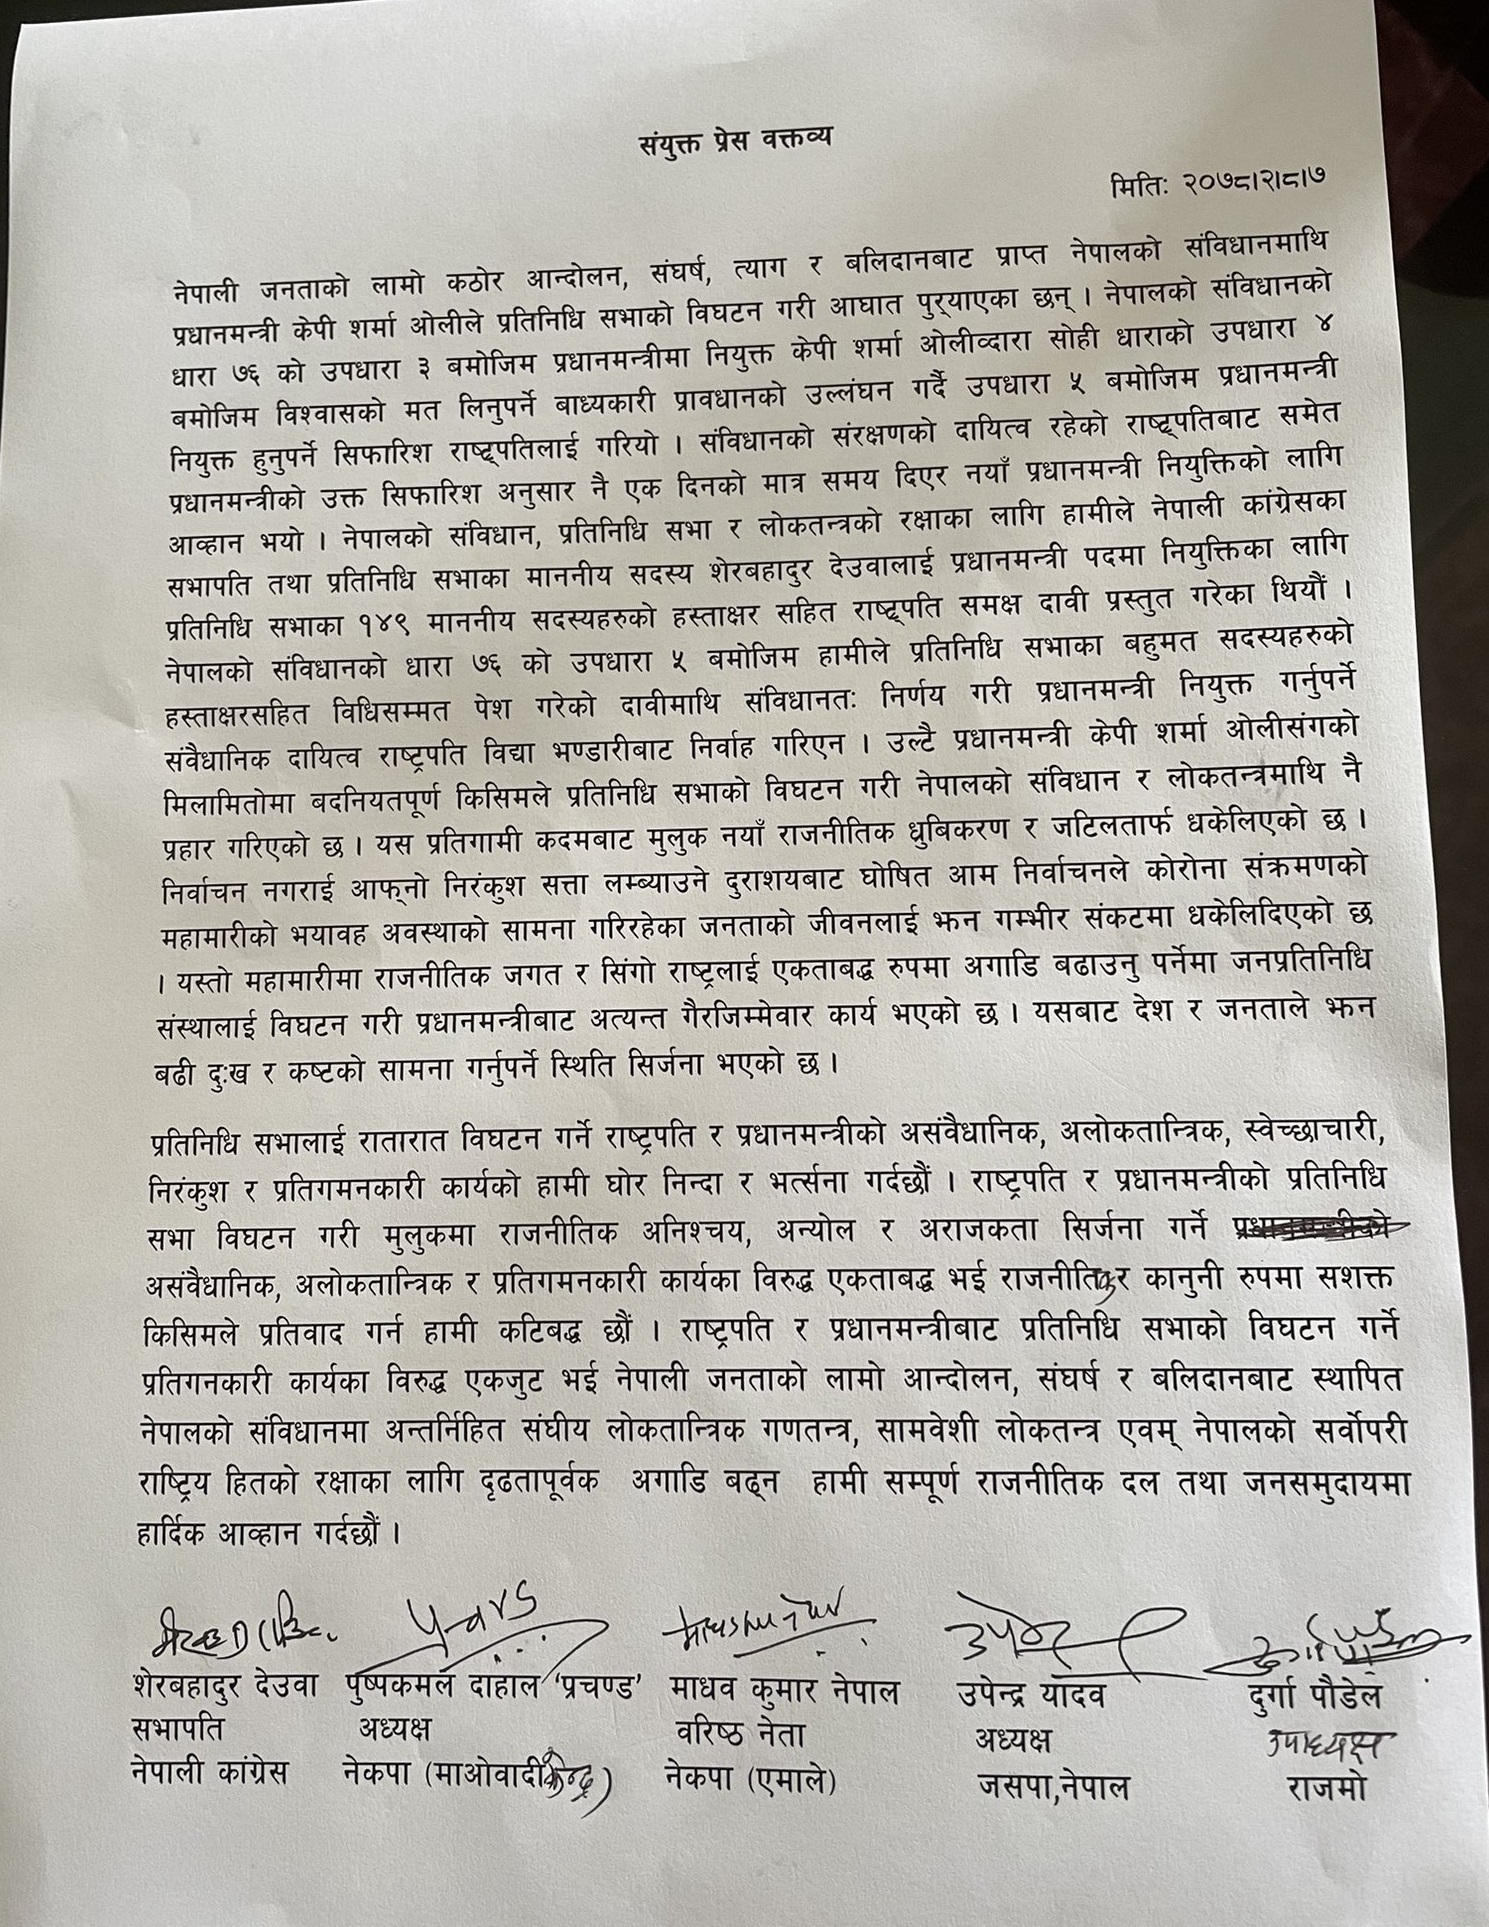 संयुक्त प्रेस वक्तव्य
मितिः २०७८।२।८।७
नेपाली जनताको लामो कठोर आन्दोलन, संघर्ष, त्याग र बलिदानबाट प्राप्त नेपालको संविधानमाथि
प्रधानमन्त्री केपी शर्मा ओलीले प्रतिनिधि सभाको विघटन गरी आघात पुर्‍याएका छन् । नेपालको संविधानको
धारा ७६ को उपधारा ३ बमोजिम प्रधानमन्त्रीमा नियुक्त केपी शर्मा ओलीव्दारा सोही धाराको उपधारा ४
बमोजिम विश्वासको मत लिनुपर्ने बाध्यकारी प्रावधानको उल्लंघन गर्दै उपधारा ५ बमोजिम प्रधानमन्त्री
नियुक्त हुनुपर्ने सिफारिश राष्ट्पतिलाई गरियो । संविधानको संरक्षणको दायित्व रहेको राष्ट्पतिबाट समेत
प्रधानमन्त्रीको उक्त सिफारिश अनुसार नै एक दिनको मात्र समय दिएर नयाँ प्रधानमन्त्री नियुक्तिको लागि
आव्हान भयो । नेपालको संविधान, प्रतिनिधि सभा र लोकतन्त्रको रक्षाका लागि हामीले नेपाली कांग्रेसका
सभापति तथा प्रतिनिधि सभाका माननीय सदस्य शेरबहादुर देउवालाई प्रधानमन्त्री पदमा नियुक्तिका लागि
प्रतिनिधि सभाका १४९ माननीय सदस्यहरुको हस्ताक्षर सहित राष्ट्पति समक्ष दावी प्रस्तुत गरेका थियौं ।
नेपालको संविधानको धारा ७६ को उपधारा ५ बमोजिम हामीले प्रतिनिधि सभाका बहुमत सदस्यहरुको
हस्ताक्षरसहित विधिसम्मत पेश गरेको दावीमाथि संविधानतः निर्णय गरी प्रधानमन्त्री नियुक्त गर्नुपर्ने
संवैधानिक दायित्व राष्ट्रपति विद्या भण्डारीबाट निर्वाह गरिएन । उल्टै प्रधानमन्त्री केपी शर्मा ओलीसंगको
मिलामितोमा बदनियतपूर्ण किसिमले प्रतिनिधि सभाको विघटन गरी नेपालको संविधान र लोकतन्त्रमाथि नै
प्रहार गरिएको छ । यस प्रतिगामी कदमबाट मुलुक नयाँ राजनीतिक ध्रुबिकरण र जटिलतार्फ धकेलिएको छ ।
निर्वाचन नगराई आफ्नो निरंकुश सत्ता लम्ब्याउने दुराशयबाट घोषित आम निर्वाचनले कोरोना संक्रमणको
महामारीको भयावह अवस्थाको सामना गरिरहेका जनताको जीवनलाई झन गम्भीर संकटमा धकेलिदिएको छ
। यस्तो महामारीमा राजनीतिक जगत र सिंगो राष्ट्रलाई एकताबद्ध रुपमा अगाडि बढाउनु पर्नेमा जनप्रतिनिधि
संस्थालाई विघटन गरी प्रधानमन्त्रीबाट अत्यन्त गैरजिम्मेवार कार्य भएको छ । यसबाट देश र जनताले झन
बढी दुःख र कष्टको सामना गर्नुपर्ने स्थिति सिर्जना भएको छ ।
प्रतिनिधि सभालाई रातारात विघटन गर्ने राष्ट्रपति र प्रधानमन्त्रीको असंवैधानिक, अलोकतान्त्रिक, स्वेच्छाचारी,
निरंकुश र प्रतिगमनकारी कार्यको हामी घोर निन्दा र भर्त्सना गर्दछौं । राष्ट्रपति र प्रधानमन्त्रीको प्रतिनिधि
सभा विघटन गरी मुलुकमा राजनीतिक अनिश्चय, अन्योल र अराजकता सिर्जना गर्ने प्रधानमन्त्रीको
असंवैधानिक, अलोकतान्त्रिक र प्रतिगमनकारी कार्यका विरुद्ध एकताबद्ध भई राजनीतिक र कानुनी रुपमा सशक्त
किसिमले प्रतिवाद गर्न हामी कटिबद्ध छौं । राष्ट्रपति र प्रधानमन्त्रीबाट प्रतिनिधि सभाको विघटन गर्ने
प्रतिगनकारी कार्यका विरुद्ध एकजुट भई नेपाली जनताको लामो आन्दोलन, संघर्ष र बलिदानबाट स्थापित
नेपालको संविधानमा अन्तर्निहित संघीय लोकतान्त्रिक गणतन्त्र, सामवेशी लोकतन्त्र एवम् नेपालको सर्वोपरी
राष्ट्रिय हितको रक्षाका लागि दृढतापूर्वक अगाडि बढ्न हामी सम्पूर्ण राजनीतिक दल तथा जनसमुदायमा
हार्दिक आव्हान गर्दछौं ।
शेरबहादुर देउवा पुष्पकमल दाहाल 'प्रचण्ड' माधव कुमार नेपाल उपेन्द्र यादव दुर्गा पौडेल
सभापति अध्यक्ष वरिष्ठ नेता अध्यक्ष उपाध्यक्ष
नेपाली कांग्रेस नेकपा (माओवादी केन्द्र) नेकपा (एमाले) जसपा,नेपाल राजमो